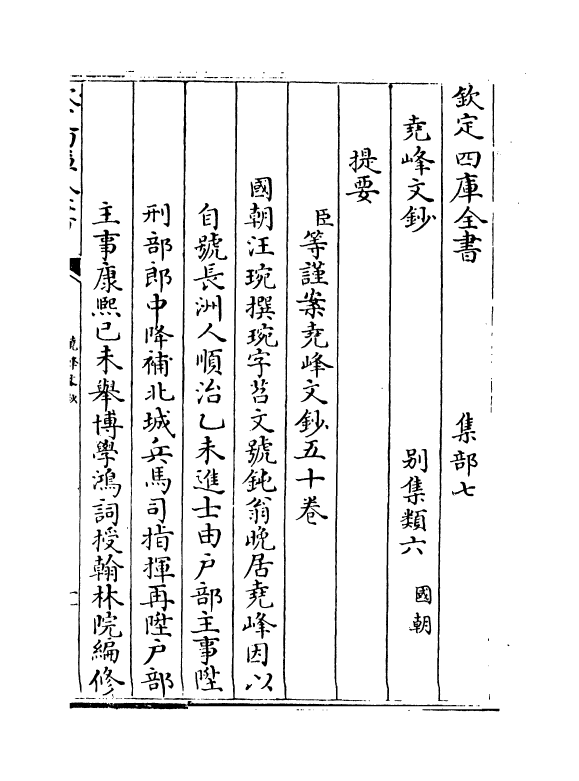 欽定四庫全書　集部七
堯峰文鈔　别集類六 國朝
提要
臣等謹案堯峰文鈔五十卷
國朝汪琬撰琬字苕文號鈍翁晚居堯峰因以
自號長洲人順治乙未進士由户部主事陞
刑部郎中降補北城兵馬司指揮再陞户部
主事康熙己未舉博學鴻詞授翰林院編修